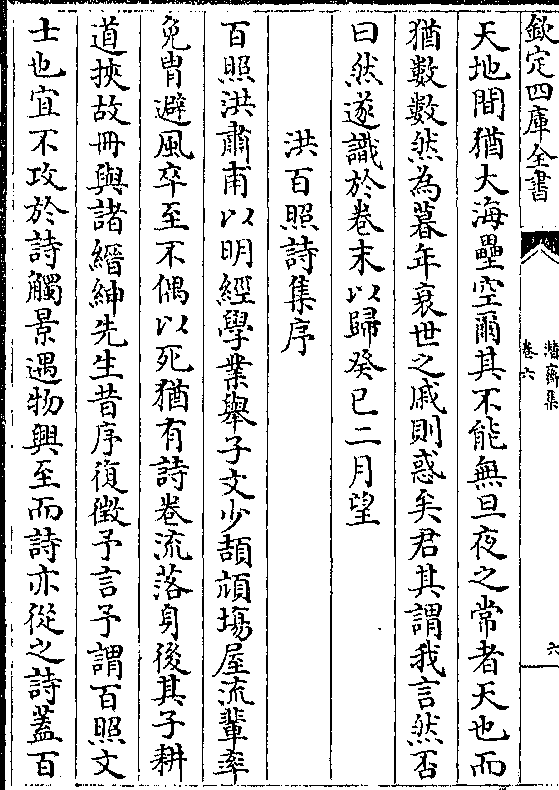 欽定四庫全書
潛齋集
卷六
六
天地間猶大海礨空爾其不能無旦夜之常者天也而
猶數數然為暮年衰世之戚則惑矣君其謂我言然否
曰然遂識於卷末以歸癸巳二月望
洪百照詩集序
百照洪肅甫以明經學業舉子文少頡頏場屋流輩率
免胄避風卒至不偶以死猶有詩卷流落身後其子耕
道挾故冊與諸縉紳先生昔序復徵予言予謂百照文
士也宜不攻於詩觸景遇物興至而詩亦從之詩蓋百